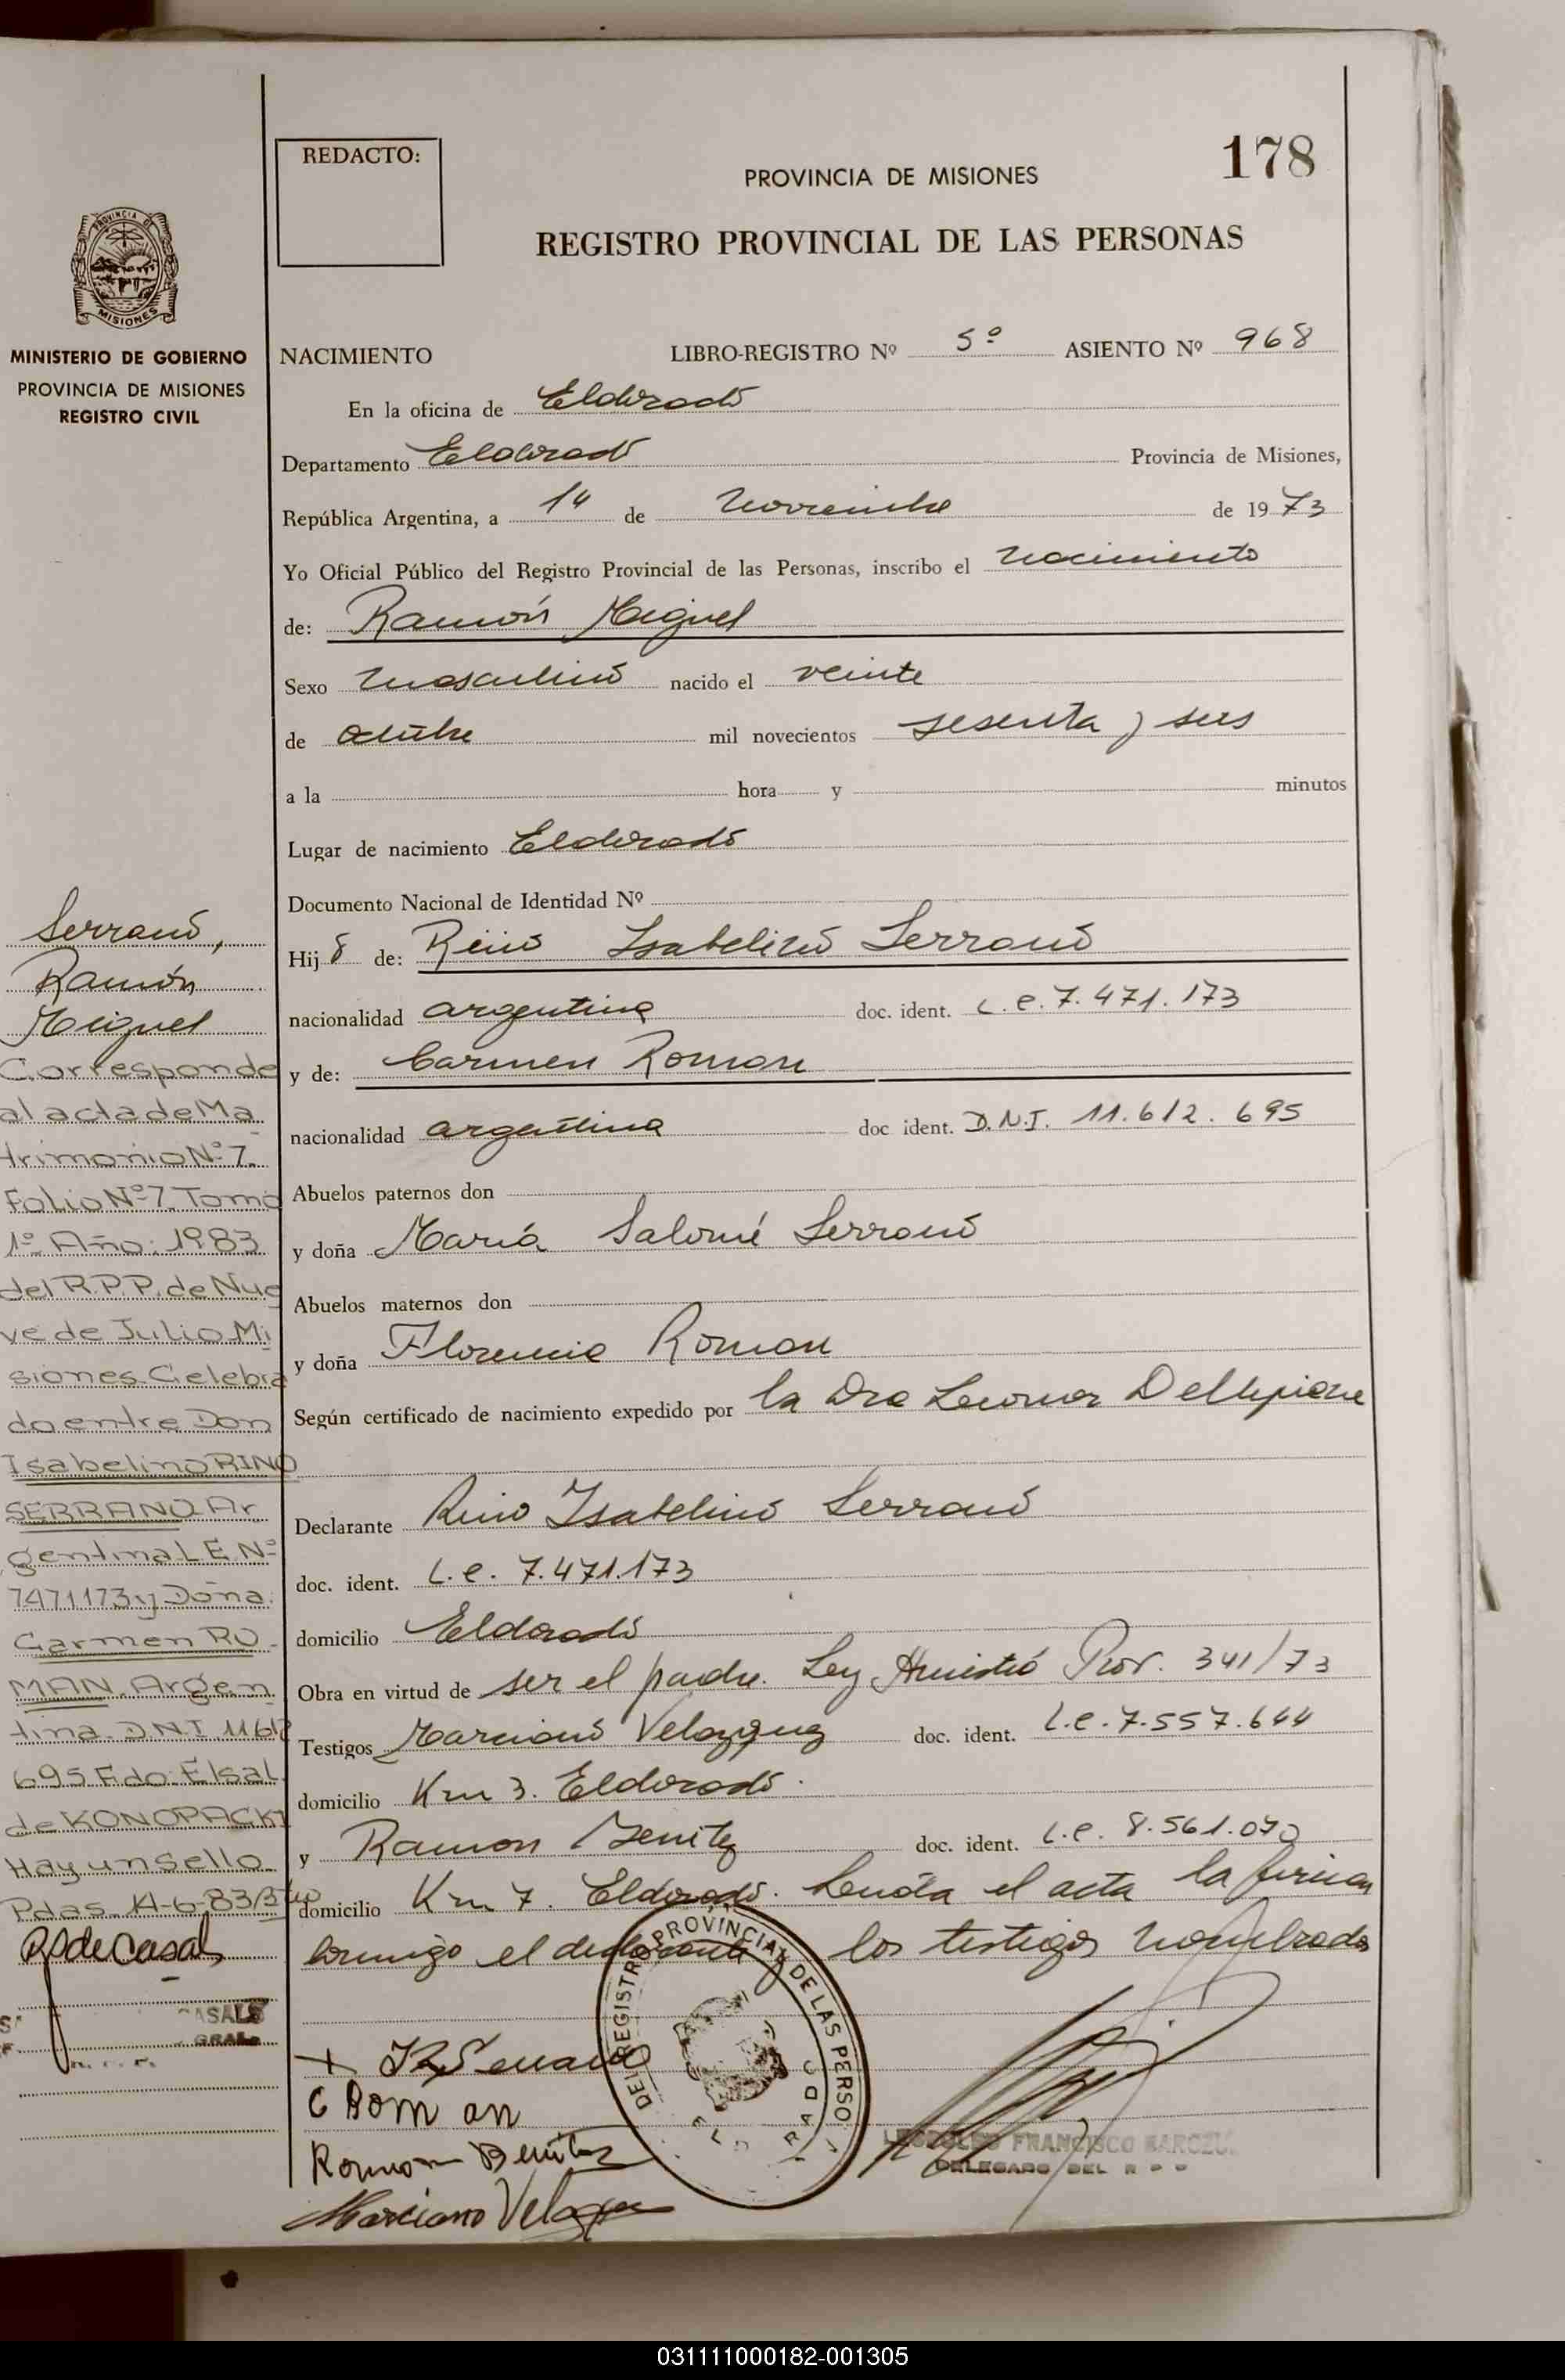 178
REDACTO:
PROVINCIA DE MISIONES
REGISTRO PROVINCIAL DE LAS PERSONAS
PROVINCIA DE
MISIONES
MINISTERIO DE GOBIERNO
PROVINCIA DE MISIONES
REGISTRO CIVIL
NACIMIENTO LIBRO-REGISTRO Nº 5º ASIENTO Nº 968
En la oficina de Eldorado
Departamento Eldorado Provincia de Misiones,
República Argentina, a 14 de Noviembre de 1973
Yo Oficial Público del Registro Provincial de las Personas, inscribo el nacimiento
de: Ramón Miguel
Sexo masculino nacido el veinte
de octubre mil novecientos sesenta y seis
a la hora y minutos
Lugar de nacimiento Eldorado
Documento Nacional de Identidad Nº
Hijo de: Rino Isabelino Serrano
nacionalidad argentina doc. ident. L.e. 7.471.173
y de: Carmen Roman
nacionalidad argentina doc ident. D.N.I. 11.612.695
Abuelos paternos don
y doña María Salomé Serrano
Abuelos maternos don
y doña Florencia Roman
Según certificado de nacimiento expedido por la Dra Leonor Dellepiane
Declarante Rino Isabelino Serrano
doc. ident. L.e. 7.471.173
domicilio Eldorado
Obra en virtud de ser el padre. Ley Amnistió Prov. 341/73
Testigos Marciano Velazquez doc. ident. L.e. 7.557.644
domicilio Km 3. Eldorado.
y Ramon Benitez doc. ident. L.e. 8.561.070
domicilio Km 7. Eldorado. Leída el acta la firman
conmigo el declarante y los testigos nombrados
Serrano,
Ramón
Miguel
Corresponde
al acta de Ma
trimonio Nº 7.
Folio Nº 7. Tomo
1º Año: 1983
del R.P.P. de Nue
ve de Julio Mi
siones Celebra
do entre Don
Isabelino RINO
SERRANO Ar
gentina L E Nº
7471173 y Doña
Carmen RO
MAN. Argen
tina. D.N.I. 11612
695 Fdo: Elsa L
de KONOPACKI
Hay un sello
Pdas. 14-6-83
R de Casals
CASALS
GRAL.
DEL REGISTRO PROVINCIAL DE LAS PERSO
I R Serrano
C Rom an
Ramon Benitez
Marciano Velazquez
LEOPOLDO FRANCISCO
DELEGADO DEL R P P
031111000182-001305